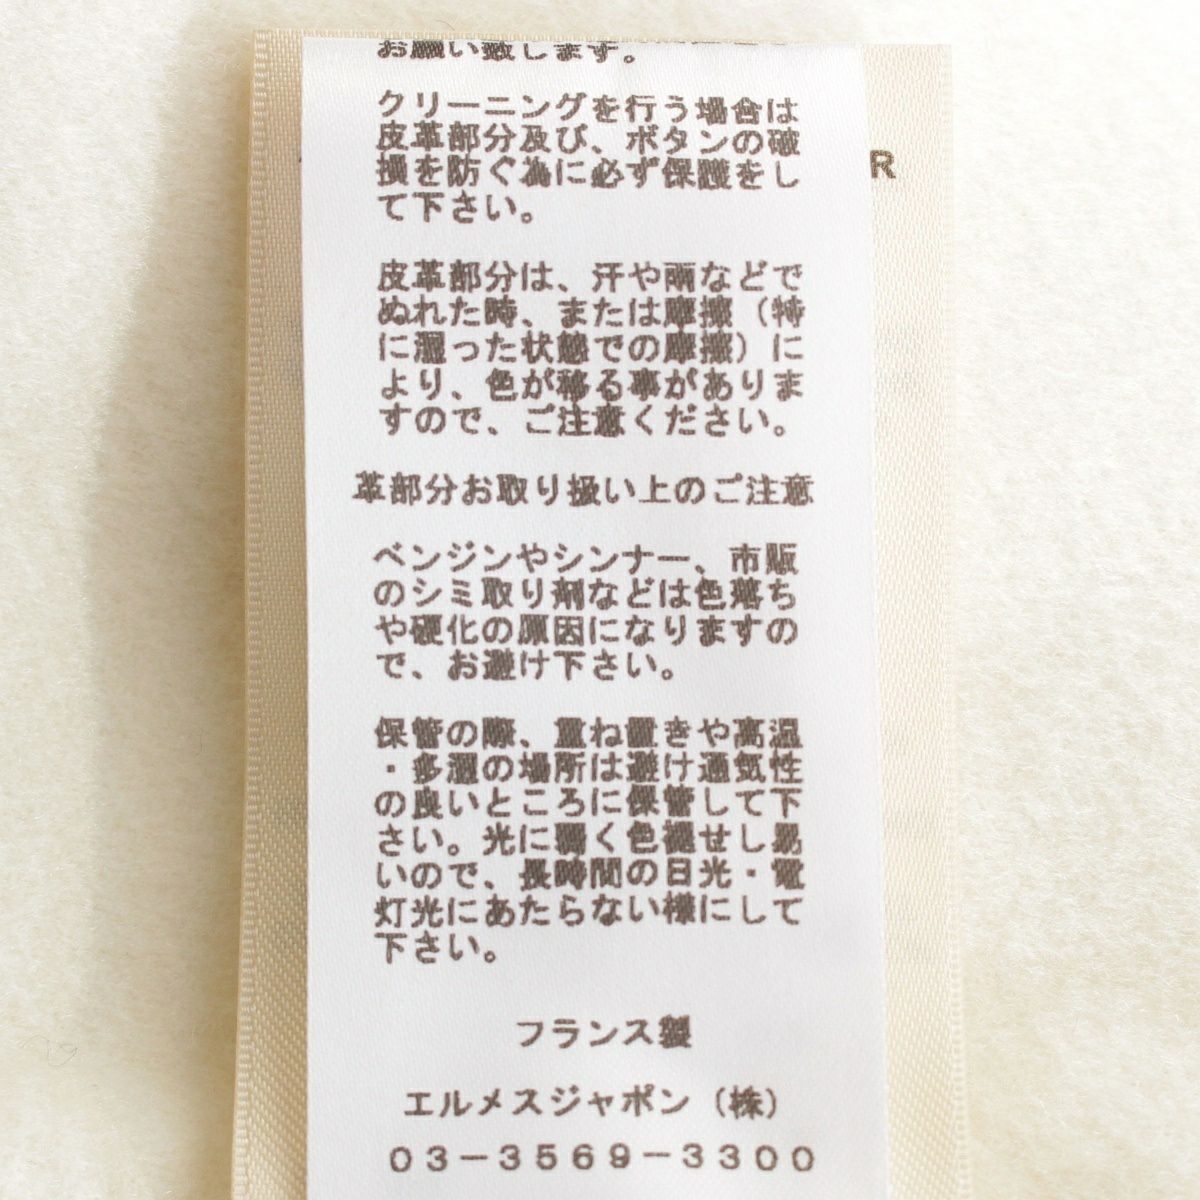 お願い致します。
クリーニングを行う場合は
皮革部分及び、ボタンの破
損を防ぐ為に必ず保護をし
て下さい。
皮革部分は、汗や雨などで
ぬれた時、または摩擦（特
に湿った状態での摩擦）に
より、色が移る事がありま
すので、ご注意ください。
革部分お取り扱い上のご注意
ベンジンやシンナー、市販
のシミ取り剤などは色落ち
や硬化の原因になりますの
で、お避け下さい。
保管の際、重ね置きや高温
・多湿の場所は避け通気性
の良いところに保管して下
さい。光に弱く色褪せし易
いので、長時間の日光・電
灯光にあたらない様にして
下さい。
フランス製
エルメスジャポン（株）
０３－３５６９－３３００
R